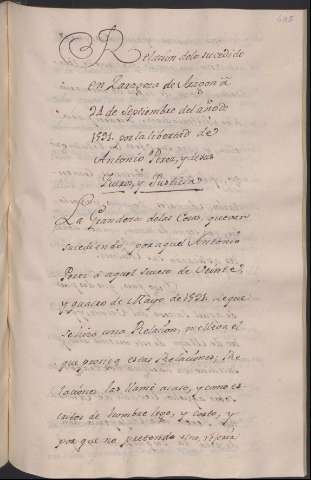 Relacion delo sucedido
en Zaragoza de Aragon à
24 de Septiembre del año de
1591. por la libertad de
Antonio Perez, y de sus
Fueros, y Justicia
La Grandeza de las Cosas, que van
sucediendo por aquel Antonio
Perez à aquel suceso de Veinte,
y quatro de Mayo de 1591. de que
se hizo una Relacion, me lleva el
que prosiga estas Relaciones; Re
laciones las llamé acaso, y como es
critos de hombre lego, y corto, y
por que no pretendo